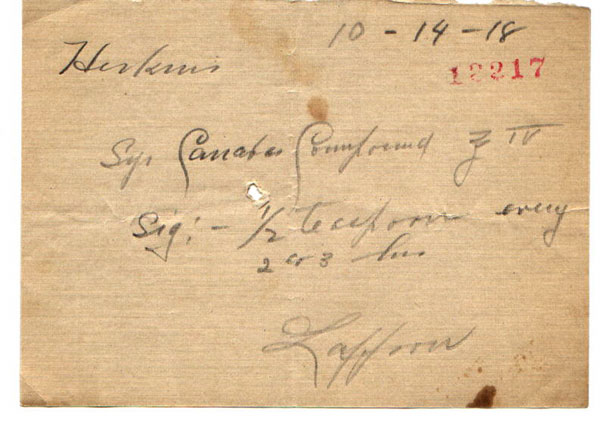 10-14-18
12217
Syr Canabis Compound ℥ IV
Sig:- 1/2 teaspoon every
2 or 3 hrs
Laffoon